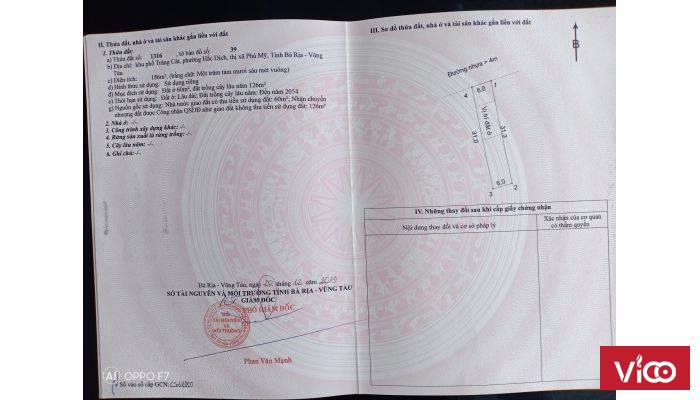 II. Thửa đất, nhà ở và tài sản khác gắn liền với đất
1. Thửa đất:
a) Thửa đất số: 1316 , tờ bản đồ số: 39
b) Địa chỉ: khu phố Trảng Cát, phường Hắc Dịch, thị xã Phú Mỹ, Tỉnh Bà Rịa - Vũng
Tàu.
c) Diện tích: 186m², (bằng chữ: Một trăm tám mươi sáu mét vuông)
d) Hình thức sử dụng: Sử dụng riêng
đ) Mục đích sử dụng: Đất ở 60m², đất trồng cây lâu năm 126m²
e) Thời hạn sử dụng: Đất ở: Lâu dài; Đất trồng cây lâu năm: Đến năm 2054
g) Nguồn gốc sử dụng: Nhà nước giao đất có thu tiền sử dụng đất: 60m²; Nhận chuyển
nhượng đất được Công nhận QSDĐ như giao đất không thu tiền sử dụng đất: 126m²
2. Nhà ở: -/-.
3. Công trình xây dựng khác: -/-.
4. Rừng sản xuất là rừng trồng: -/-.
5. Cây lâu năm: -/-.
6. Ghi chú: -/-.
Bà Rịa - Vũng Tàu, ngày 25 tháng 12 năm 2019
SỞ TÀI NGUYÊN VÀ MÔI TRƯỜNG TỈNH BÀ RỊA - VŨNG TÀU
GIÁM ĐỐC
PHÓ GIÁM ĐỐC
SỞ
TÀI NGUYÊN
VÀ
MÔI TRƯỜNG
Phan Văn Mạnh
Số vào sổ cấp GCN:
AI OPPO F7
III. Sơ đồ thửa đất, nhà ở và tài sản khác gắn liền với đất
B
Đường nhựa > 4m
4 6,0 1
Vị trí đất ở
31,0 31,0
6,0
3 2
IV. Những thay đổi sau khi cấp giấy chứng nhận
Nội dung thay đổi và cơ sở pháp lý
Xác nhận của cơ quan
có thẩm quyền
vico